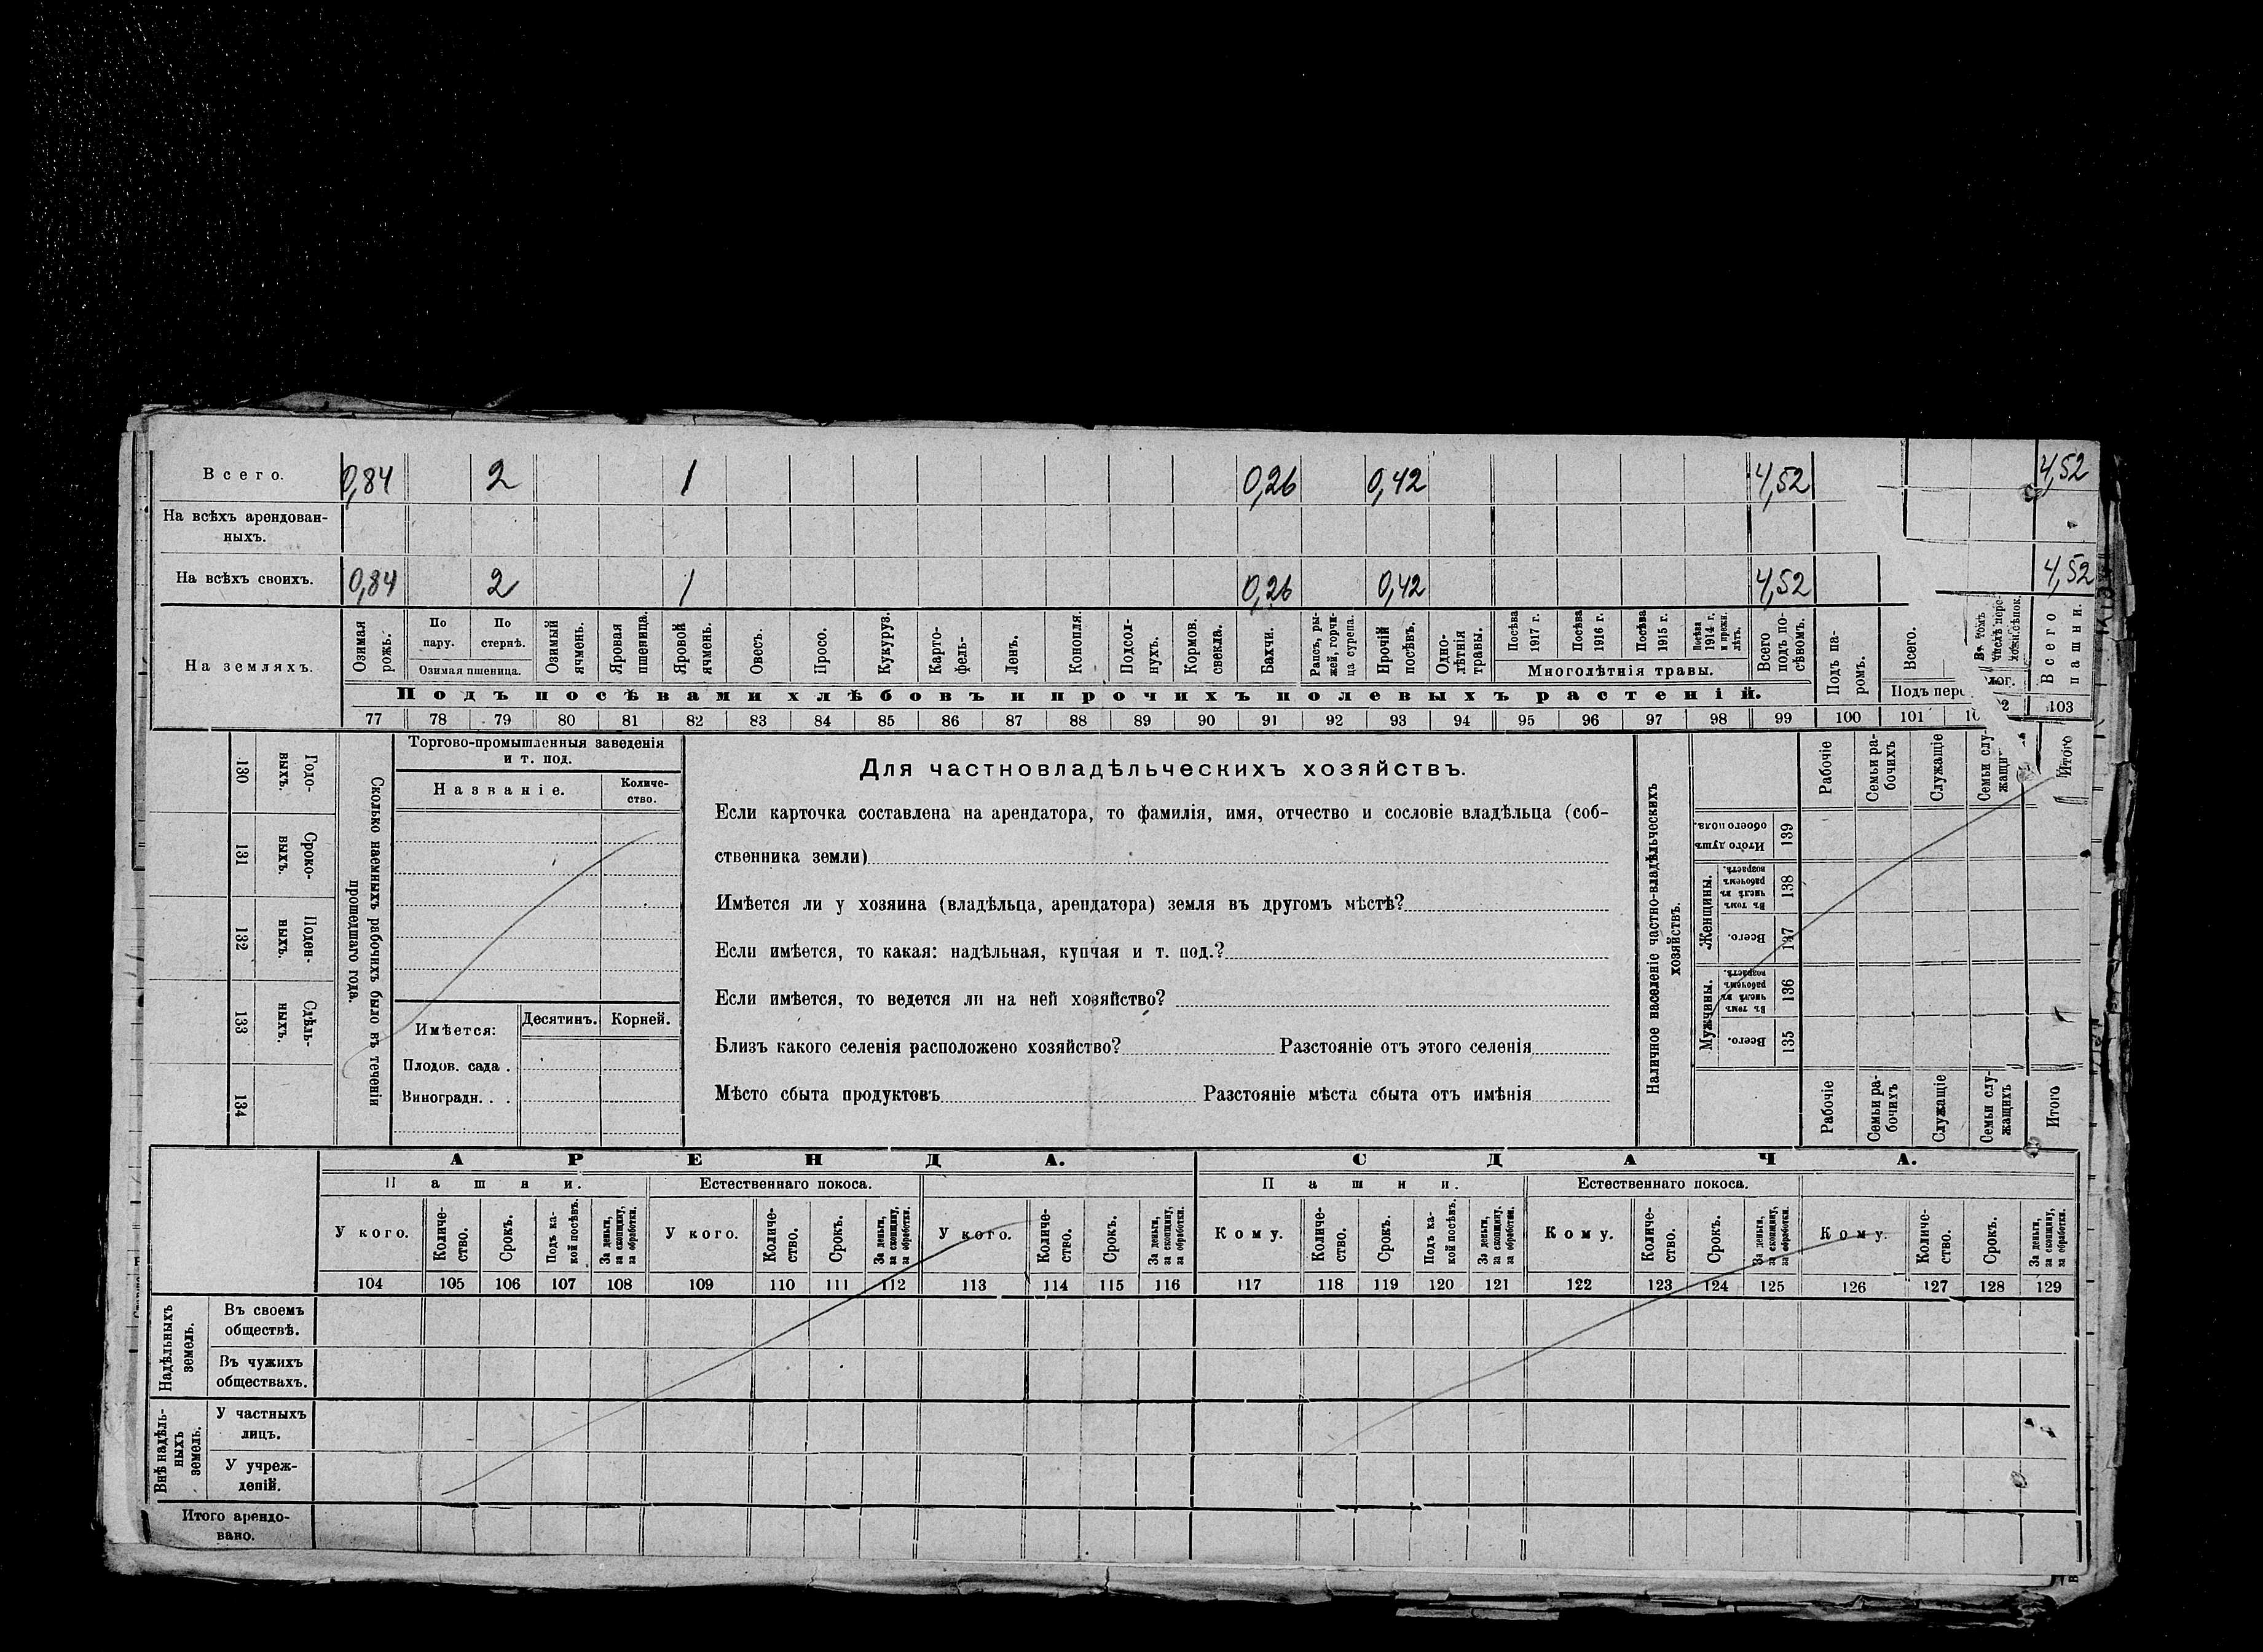 Всего. 0,84 2 1 0,26 0,42 4,52 4,52
На всѣхъ арендован-
ныхъ.
На всѣхъ своихъ. 0,84 2 1 0,26 0,42 4,52 4,52
На земляхъ.
Озимая рожь.
По пару.
По стернѣ.
Озимая пшеница.
Озимый ячмень.
Яровая пшеница.
Яровой ячмень.
Овесъ.
Просо.
Кукуруз.
Карто-
фель-
Ленъ.
Конопля.
Подсол-
нухъ.
Кормов.
свекла.
Бахчи.
Рапсъ, ры-
жей, горчи-
ца сурепа.
Прочій
посѣвъ.
Одно-
лѣтнія
травы.
Посѣва
1917 г.
Посѣва
1916 г.
Посѣва
1915 г.
Посѣва
1914 г.
и прежн.
лѣтъ.
Многолѣтнія травы.
Всего
подъ по-
сѣвомъ.
Подъ па-
ромъ.
Всего.
Въ томъ
числѣ пере-
Всего
пашни.
Подъ посѣвами хлѣбовъ и прочихъ полевыхъ растеній.
Подъ пере
лог.
77 78 79 80 81 82 83 84 85 86 87 88 89 90 91 92 93 94 95 96 97 98 99 100 101 103
130 Годо-
выхъ.
131 Сроко-
выхъ.
132 Поден-
ныхъ.
133 Сдѣль-
ныхъ.
134
Сколько наемныхъ рабочихъ было въ теченіи
прошедшаго года.
Торгово-промышленныя заведенія
и т. под.
Названіе.
Количе-
ство.
Имѣется: Десятинъ. Корней.
Плодов. сада .
Виноградн. . .
Для частновладѣльческихъ хозяйствъ.
Если карточка составлена на арендатора, то фамилія, имя, отчество и сословіе владѣльца (соб-
ственника земли)
Имѣется ли у хозяина (владѣльца, арендатора) земля въ другомъ мѣстѣ?
Если имѣется, то какая: надѣльная, купчая и т. под.?
Если имѣется, то ведется ли на ней хозяйство?
Близъ какого селенія расположено хозяйство? Разстояніе отъ этого селенія
Мѣсто сбыта продуктовъ Разстояніе мѣста сбыта отъ имѣнія
Наличное населеніе частно-владѣльческихъ
хозяйствъ.
Рабочіе
Семьи ра-
бочихъ
Служащіе
Семьи слу-
жащи
Итого
Итого душъ
обоего пола.
139
Женщины.
Въ томъ
числѣ въ
рабочемъ
возрастѣ.
138
Всего.
137
Мужчины.
Въ томъ
числѣ въ
рабочемъ
возрастѣ.
136
Всего.
135
Рабочіе
Семьи ра-
бочихъ
Служащіе
Семьи слу-
жащихъ
Итого
АРЕНДА. СДАЧА.
Пашни. Естественнаго покоса. Пашни. Естественнаго покоса.
У кого.
Количе-
ство.
Срокъ.
Подъ ка-
кой посѣвъ.
За деньги,
за скопщину,
за обработки.
У кого.
Количе-
ство.
Срокъ.
За деньги,
за скопщину,
за обработки.
У кого.
Количе-
ство.
Срокъ.
За деньги,
за скопщину,
за обработки.
Кому.
Количе-
ство.
Срокъ.
Подъ ка-
кой посѣвъ.
За деньги,
за скопщину,
за обработки.
Кому.
Количе-
ство.
Срокъ.
За деньги,
за скопщину,
за обработки.
Кому.
Количе-
ство.
Срокъ.
За деньги,
за скопщину,
за обработки.
104 105 106 107 108 109 110 111 112 113 114 115 116 117 118 119 120 121 122 123 124 125 126 127 128 129
Надѣльныхъ
земель.
Въ своемъ
обществѣ.
Въ чужихъ
обществахъ.
Внѣ надѣль-
ныхъ
земель.
У частныхъ
лицъ.
У учреж-
деній.
Итого арендо-
вано.